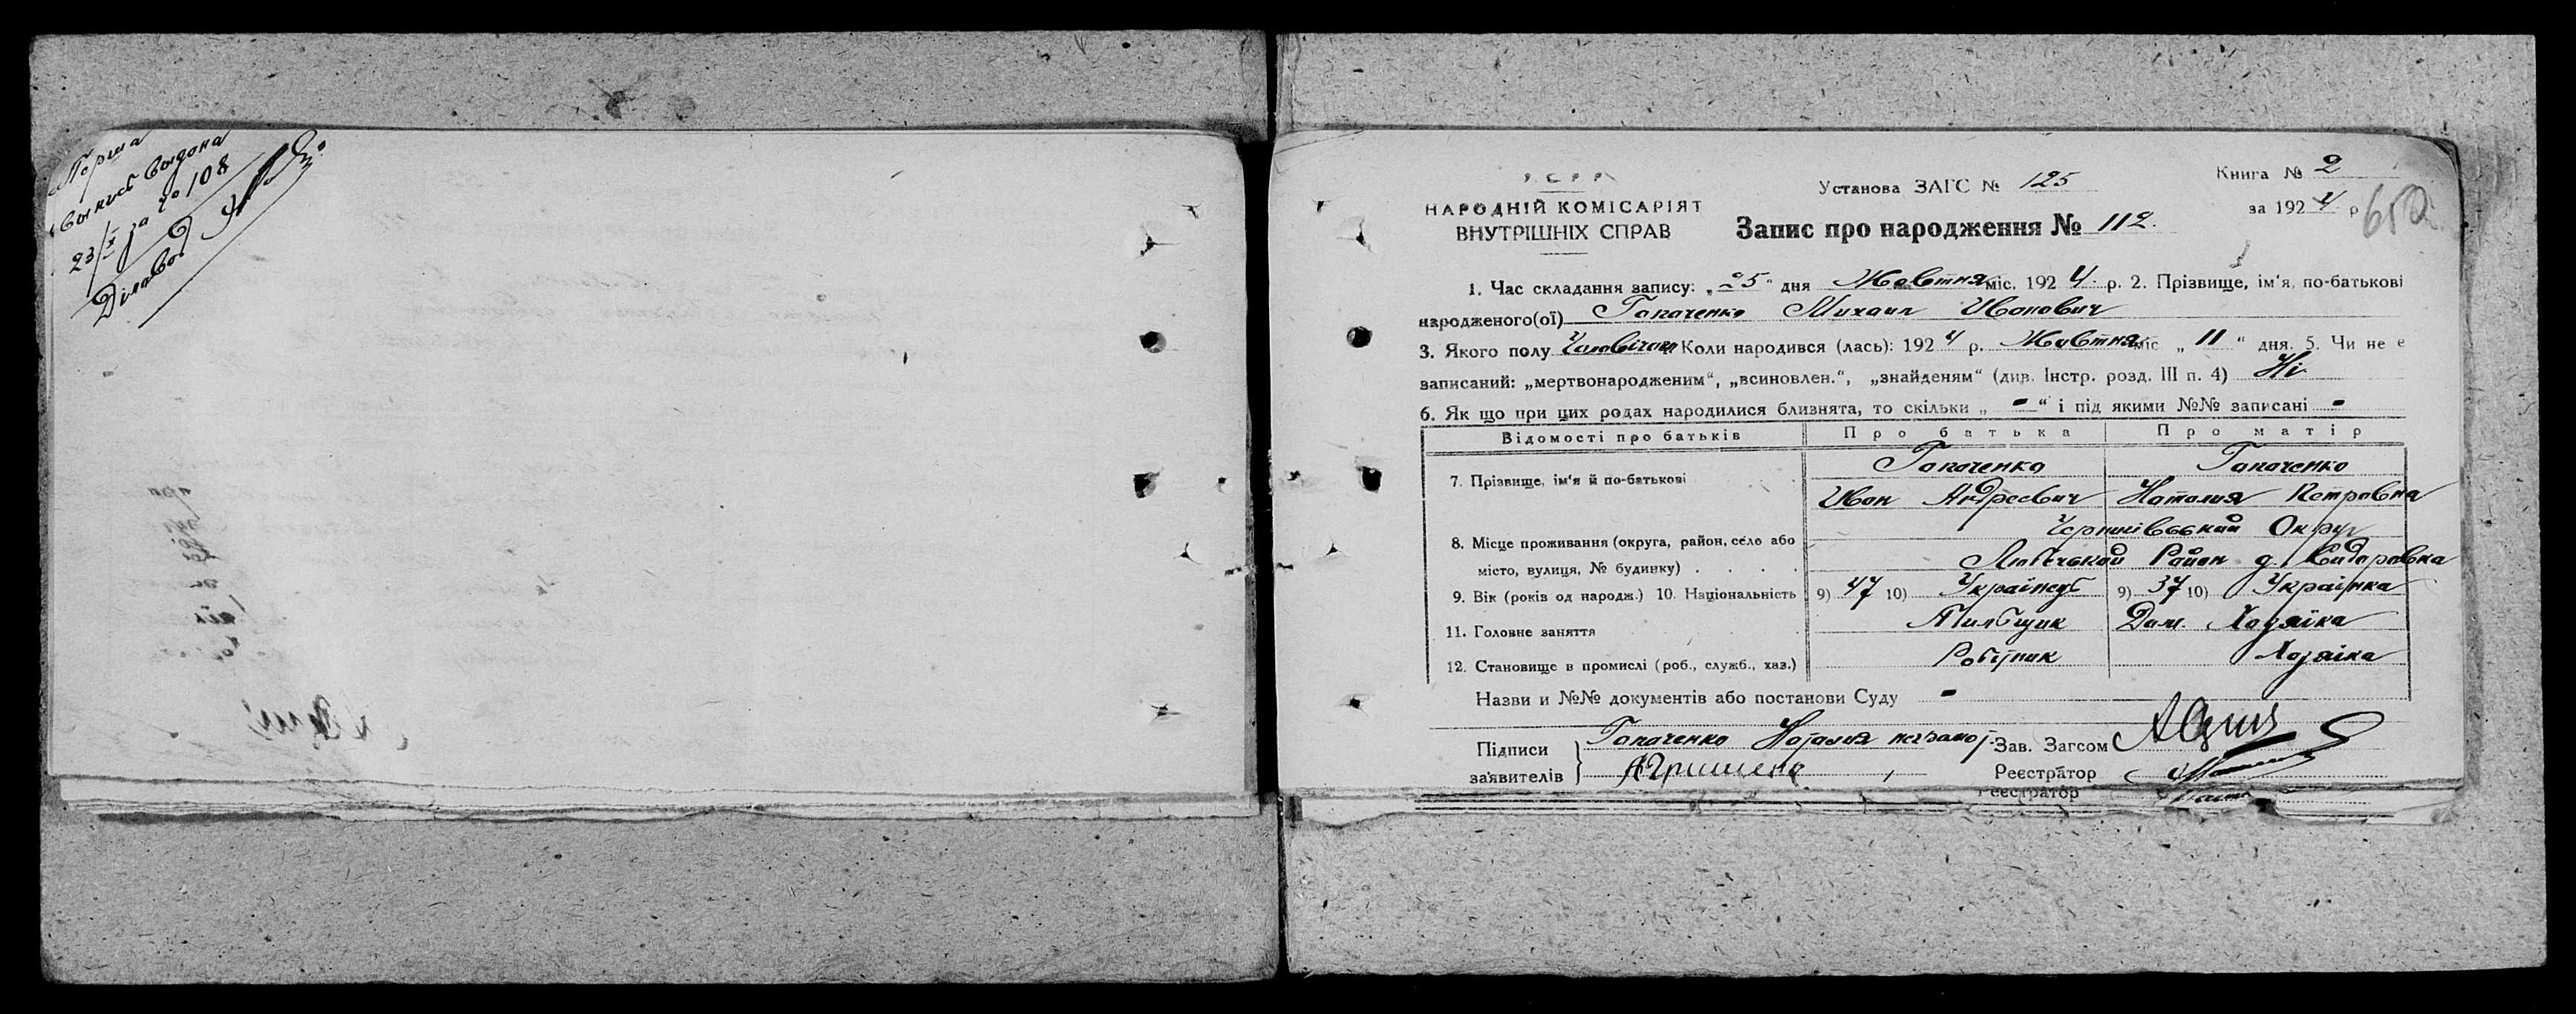 Перша
выпись выдана
23/X за № 108
Діловод
У.С.Р.Р.
НАРОДНІЙ КОМІСАРІЯТ
ВНУТРІШНІХ СПРАВ
Установа ЗАГС № 125
Книга № 2
за 1924 р
Запис про народження № 112.
1. Час складання запису: „25“ дня Жовтня міс. 1924 р. 2. Прізвище, ім'я, по-батькові
народженого(ої) Гапаченко Михаил Иванович
3. Якого полу Чоловічого 4. Коли народився (лась): 1924 р. Жовтня міс „11“ дня. 5. Чи не є
записаний: „мертвонародженим“, „всиновлен.“, „знайденям“ (див. Інстр. розд. III п. 4) Ні
6. Як що при цих родах народилися близнята, то скільки „-“ і під якими №№ записані -
Відомості про батьків Про батька Про матір
7. Прізвище, ім'я й по-батькові Гапаченко Гапаченко
Иван Андреевич Наталия Петровна
8. Місце проживання (округа, район, село або Чернігівський Округ
місто, вулиця, № будинку) . . . . Любечський Район д.
9. Вік (років од народж.) 10. Національність 9) 47 10) Українець 9) 37 10) Українка
11. Головне заняття Пильщик Дом. Хозяїка
12. Становище в промислі (роб., служб., хаз.) Робітник Хозяїка
Назви и №№ документів або постанови Суду -
Підписи Гапаченко Наталия неграмот. Зав. Загсом
заявителів Реєстратор
Реєстратор